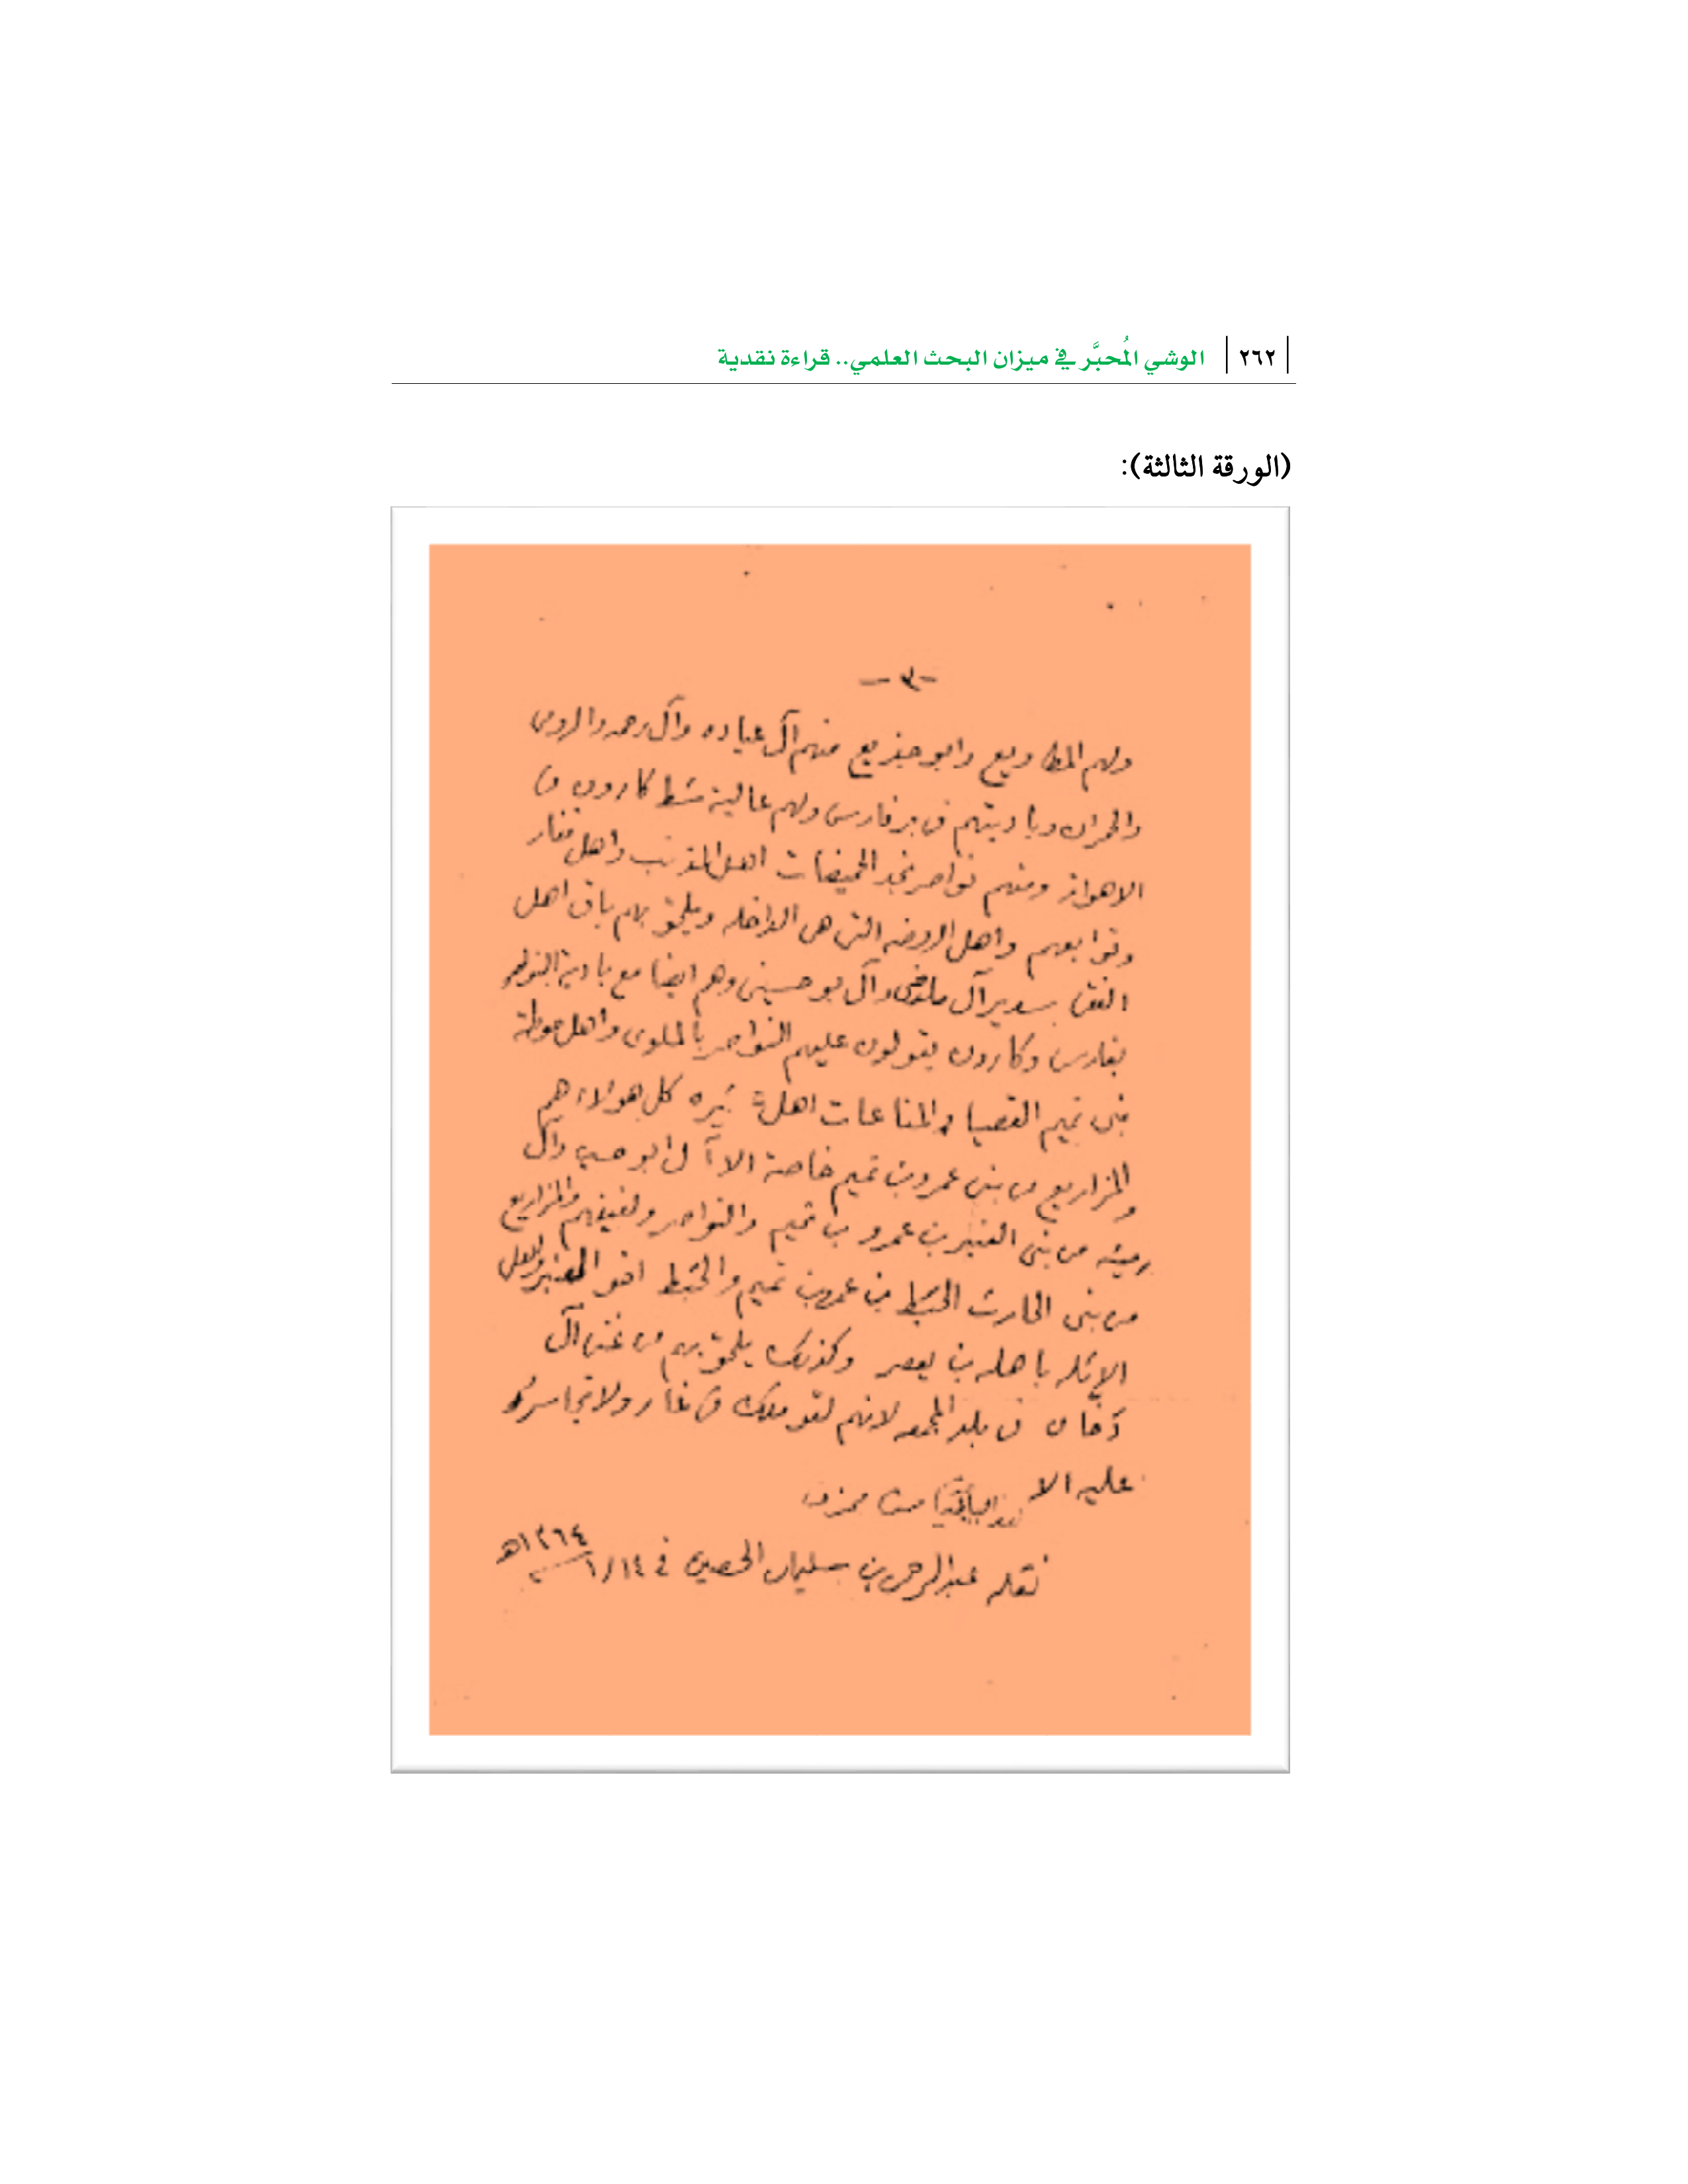 ٢٦٢ الوشي المُحبَّر في ميزان البحث العلمي.. قراءة نقدية
(الورقة الثالثة):
-٣-
ولهم المطاويع وابو جذيع منهم آل عياده وآل رحمه والرومي
والحمران وباديتهم في بر فارس ولهم عالية شط كارون في
الاهواز ومنهم نواصر نجد الحميضات اهل المذنب واهل نفار
وتوابعهم واهل الروضه التي هي الداخله ويلحق بهم باقي اهل
بسدير آل ماضي وآل بو حسيني وهم ايضا مع بادية النواصر
بفارس وكارون يقولون عليهم النواصر بالملوى واهل حوطة
بني تميم القصيا والمناعات اهل كل هولاء هم
والمزاريع من بني عمرو بن تميم خاصة الا آل ابو حسين وآل
من بني العنبر بن عمرو بن تميم والنواصر ولفيفهم والمزاريع
من بني الحارث الحبط بن عمرو بن تميم والحبط اخو العنبر
باهله بن يعصر وكذلك يلحق بهم من غني آل
في بلد المجمعه لانهم لقو ملك في غار ولا تجاسرو
عليه الا
نقله عبدالرحمن بن سليمان الحصين في ١/١٤/ ١٣٦٤هـ